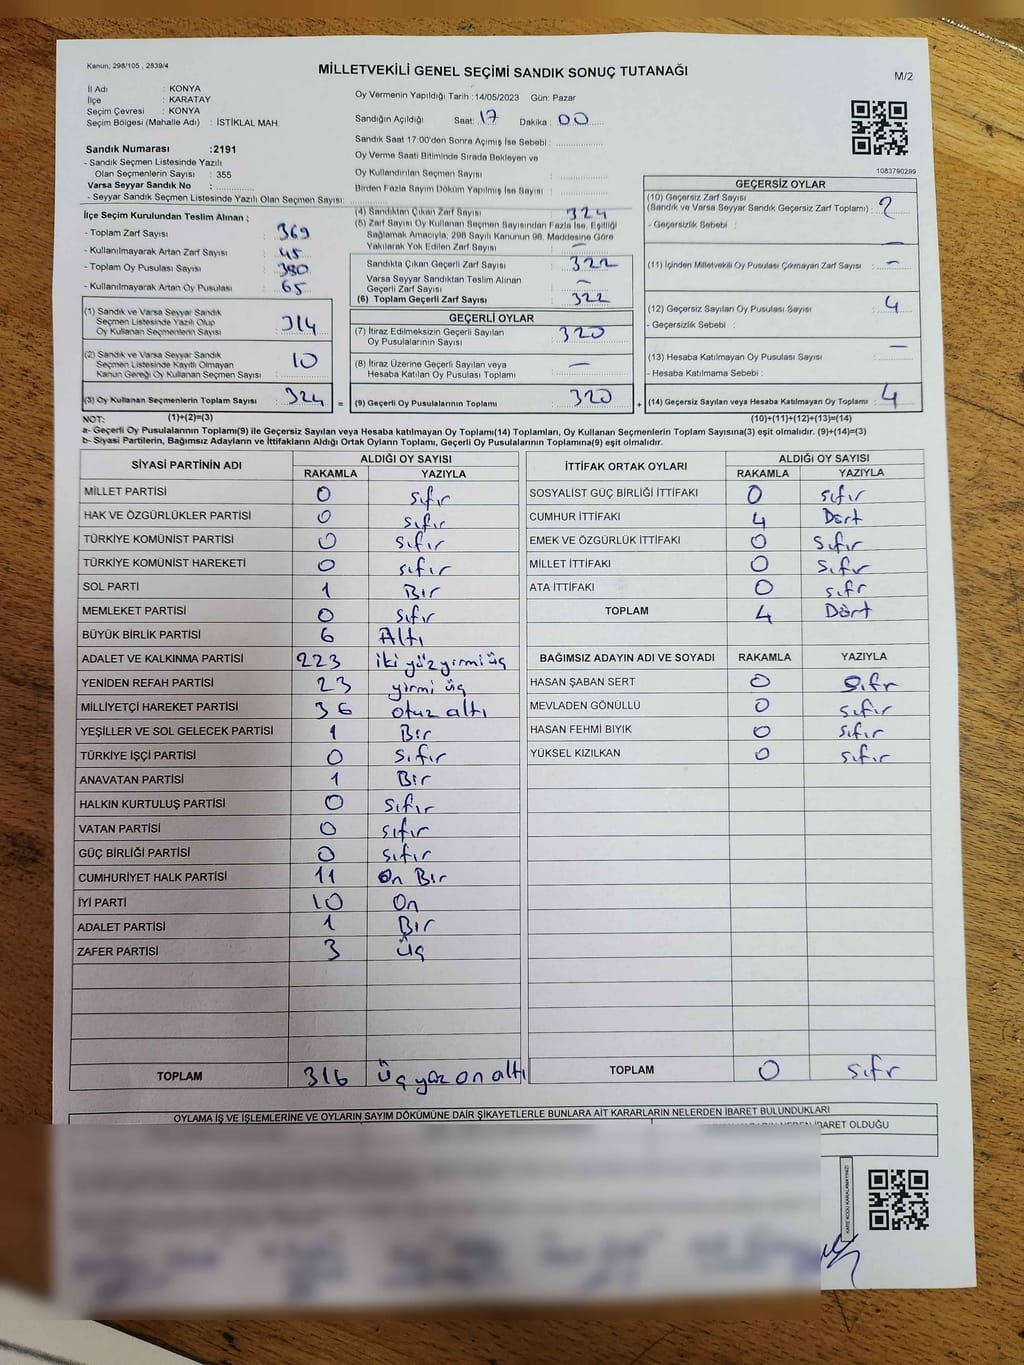 Kanun; 298/105 , 2839/4
MİLLETVEKİLİ GENEL SEÇİMİ SANDIK SONUÇ TUTANAĞI
M/2
İl Adı : KONYA
İlçe : KARATAY
Seçim Çevresi : KONYA
Seçim Bölgesi (Mahalle Adı) : İSTİKLAL MAH.
Sandık Numarası :2191
- Sandık Seçmen Listesinde Yazılı
Olan Seçmenlerin Sayısı : 355
Varsa Seyyar Sandık No :
- Seyyar Sandık Seçmen Listesinde Yazılı Olan Seçmen Sayısı:
Oy Vermenin Yapıldığı Tarih :14/05/2023 Gün: Pazar
Sandığın Açıldığı Saat: 17 Dakika : 00
Sandık Saat 17:00'den Sonra Açımış İse Sebebi :
Oy Verme Saati Bitiminde Sırada Bekleyen ve
Oy Kullandırılan Seçmen Sayısı :
Birden Fazla Sayım Döküm Yapılmış İse Sayısı :
1083790299
İlçe Seçim Kurulundan Teslim Alınan ;
- Toplam Zarf Sayısı : 369
- Kullanılmayarak Artan Zarf Sayısı : 45
- Toplam Oy Pusulası Sayısı : 380
- Kullanılmayarak Artan Oy Pusulası : 65
(1) Sandık ve Varsa Seyyar Sandık
Seçmen Listesinde Yazılı Olup
Oy Kullanan Seçmenlerin Sayısı : 314
(2) Sandık ve Varsa Seyyar Sandık
Seçmen Listesinde Kayıtlı Olmayan
Kanun Gereği Oy Kullanan Seçmen Sayısı : 10
(3) Oy Kullanan Seçmenlerin Toplam Sayısı : 324 =
(4) Sandıktan Çıkan Zarf Sayısı : 324
(5) Zarf Sayısı Oy Kullanan Seçmen Sayısından Fazla İse, Eşitliği
Sağlamak Amacıyla, 298 Sayılı Kanunun 98. Maddesine Göre
Yakılarak Yok Edilen Zarf Sayısı : –
Sandıkta Çıkan Geçerli Zarf Sayısı : 322
Varsa Seyyar Sandıktan Teslim Alınan
Geçerli Zarf Sayısı : –
(6) Toplam Geçerli Zarf Sayısı : 322
GEÇERLİ OYLAR
(7) İtiraz Edilmeksizin Geçerli Sayılan
Oy Pusulalarının Sayısı : 320
(8) İtiraz Üzerine Geçerli Sayılan veya
Hesaba Katılan Oy Pusulası Toplamı : –
(9) Geçerli Oy Pusulalarının Toplamı : 320 +
GEÇERSİZ OYLAR
(10) Geçersiz Zarf Sayısı
(Sandık ve Varsa Seyyar Sandık Geçersiz Zarf Toplamı) : 2
- Geçersizlik Sebebi : –
(11) İçinden Milletvekili Oy Pusulası Çıkmayan Zarf Sayısı : –
(12) Geçersiz Sayılan Oy Pusulası Sayısı : 4
- Geçersizlik Sebebi : –
(13) Hesaba Katılmayan Oy Pusulası Sayısı
- Hesaba Katılmama Sebebi :
(14) Geçersiz Sayılan veya Hesaba Katılmayan Oy Toplamı : 4
NOT: (1)+(2)=(3) (10)+(11)+(12)+(13)=(14)
a- Geçerli Oy Pusulalarının Toplamı(9) ile Geçersiz Sayılan veya Hesaba katılmayan Oy Pusulası Toplamı(14) Toplamları, Oy Kullanan Seçmenlerin Toplam Sayısına(3) eşit olmalıdır. (9)+(14)=(3)
b- Siyasi Partilerin, Bağımsız Adayların ve İttifakların Aldığı Ortak Oyların Toplamı, Geçerli Oy Pusulalarının Toplamına(9) eşit olmalıdır.
SİYASİ PARTİNİN ADI ALDIĞI OY SAYISI
RAKAMLA YAZIYLA
MİLLET PARTİSİ 0 sıfır
HAK VE ÖZGÜRLÜKLER PARTİSİ 0 sıfır
TÜRKİYE KOMÜNİST PARTİSİ 0 sıfır
TÜRKİYE KOMÜNİST HAREKETİ 0 sıfır
SOL PARTİ 1 Bır
MEMLEKET PARTİSİ 0 sıfır
BÜYÜK BİRLİK PARTİSİ 6 Altı
ADALET VE KALKINMA PARTİSİ 223 iki yüz yirmi üç
YENİDEN REFAH PARTİSİ 23 yirmi üç
MİLLİYETÇİ HAREKET PARTİSİ 36 otuz altı
YEŞİLLER VE SOL GELECEK PARTİSİ 1 Bır
TÜRKİYE İŞÇİ PARTİSİ 0 sıfır
ANAVATAN PARTİSİ 1 Bır
HALKIN KURTULUŞ PARTİSİ 0 sıfır
VATAN PARTİSİ 0 sıfır
GÜÇ BİRLİĞİ PARTİSİ 0 sıfır
CUMHURİYET HALK PARTİSİ 11 On Bır
İYİ PARTİ 10 On
ADALET PARTİSİ 1 Bır
ZAFER PARTİSİ 3 Üç
TOPLAM 316 Üç yüz on altı
İTTİFAK ORTAK OYLARI ALDIĞI OY SAYISI
RAKAMLA YAZIYLA
SOSYALİST GÜÇ BİRLİĞİ İTTİFAKI 0 sıfır
CUMHUR İTTİFAKI 4 Dört
EMEK VE ÖZGÜRLÜK İTTİFAKI 0 sıfır
MİLLET İTTİFAKI 0 sıfır
ATA İTTİFAKI 0 sıfr
TOPLAM 4 Dört
BAĞIMSIZ ADAYIN ADI VE SOYADI RAKAMLA YAZIYLA
HASAN ŞABAN SERT 0 sıfr
MEVLADEN GÖNÜLLÜ 0 sıfır
HASAN FEHMİ BIYIK 0 sıfır
YÜKSEL KIZILKAN 0 sıfır
TOPLAM 0 sıfr
OYLAMA İŞ VE İŞLEMLERİNE VE OYLARIN SAYIM DÖKÜMÜNE DAİR ŞİKAYETLERLE BUNLARA AİT KARARLARIN NELERDEN İBARET BULUNDUKLARI
İBARET OLDUĞU
KARE KODU KARALAMAYINIZ!